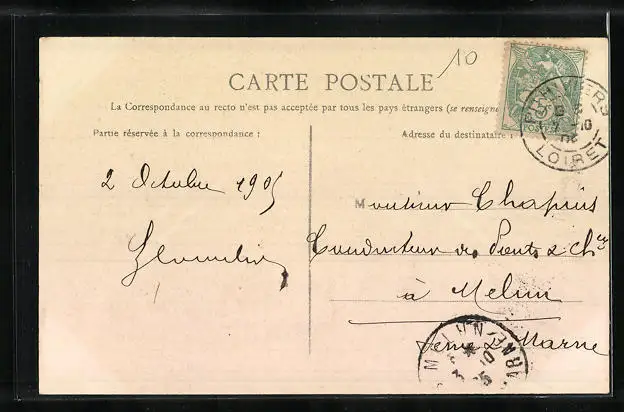 10
CARTE POSTALE
La Correspondance au recto n'est pas acceptée par tous les pays étrangers (se renseigne
Partie réservée à la correspondance :
Adresse du destinataire :
PITHIVIERS
LOIRET
2 Octobre 1905
Monsieur Chapuis
Conducteur des Ponts & Ch
à Melun
Seine & Marne
MELUN
MARNE